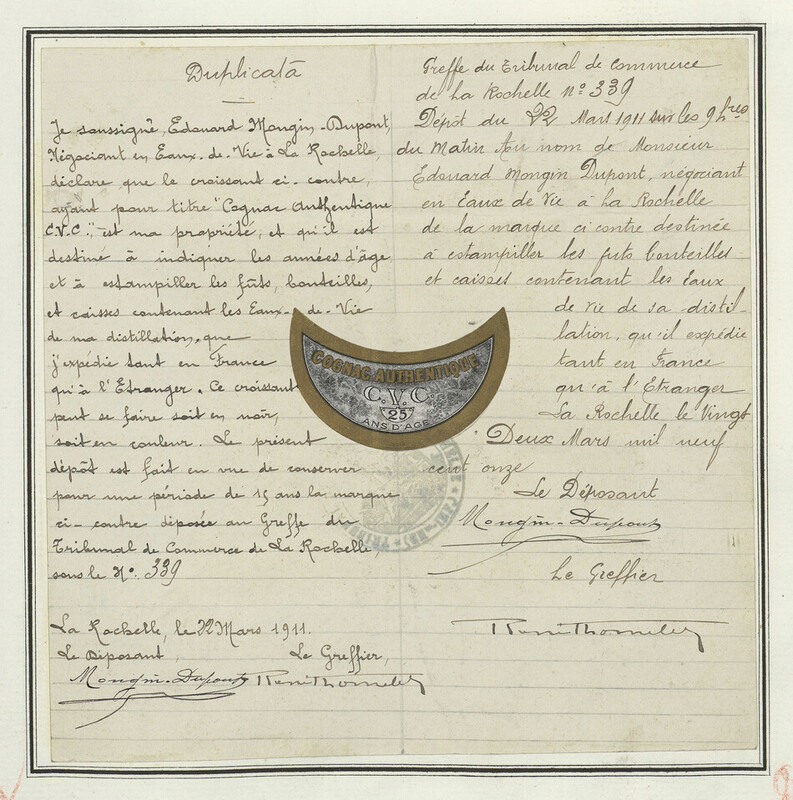 Duplicatā
Je soussigné, Edouard Mongin-Dupont,
Négociant en Eaux-de-Vie à La Rochelle,
déclare que le croissant ci-contre,
ayant pour titre "Cognac Authentique
C.V.C.", est ma propriété, et qu'il est
destiné à indiquer les années d'âge,
et à estampiller les fûts, bouteilles,
et caisses contenant les Eaux-de-Vie
de ma distillation, que
j'expédie tant en France
qu'à l'Etranger. Ce croissant
peut se faire soit en noir,
soit en couleur. Le présent
dépôt est fait en vue de conserver
pour une période de 15 ans la marque
ci-contre déposée au Greffe du
Tribunal de Commerce de La Rochelle,
sous le No. 339
La Rochelle, le 22 Mars 1911.
Le Déposant, Le Greffier,
Mongin-Dupont
COGNAC AUTHENTIQUE
C.V.C
25
ANS D'AGE
Greffe du Tribunal de Commerce
de La Rochelle No 339
Dépôt du 22 Mars 1911 sur les 9 hres
du Matin Au nom de Monsieur
Edouard Mongin Dupont, négociant
en Eaux de Vie à La Rochelle
de la marque ci contre destinée
à estampiller les futs bouteilles
et caisses contenant les Eaux
de vie de sa distil-
lation, qu'il expédie
tant en France
qu'à l'Etranger
La Rochelle le Vingt
Deux Mars mil neuf
cent onze
Le Déposant
Mongin-Dupont
Le Greffier